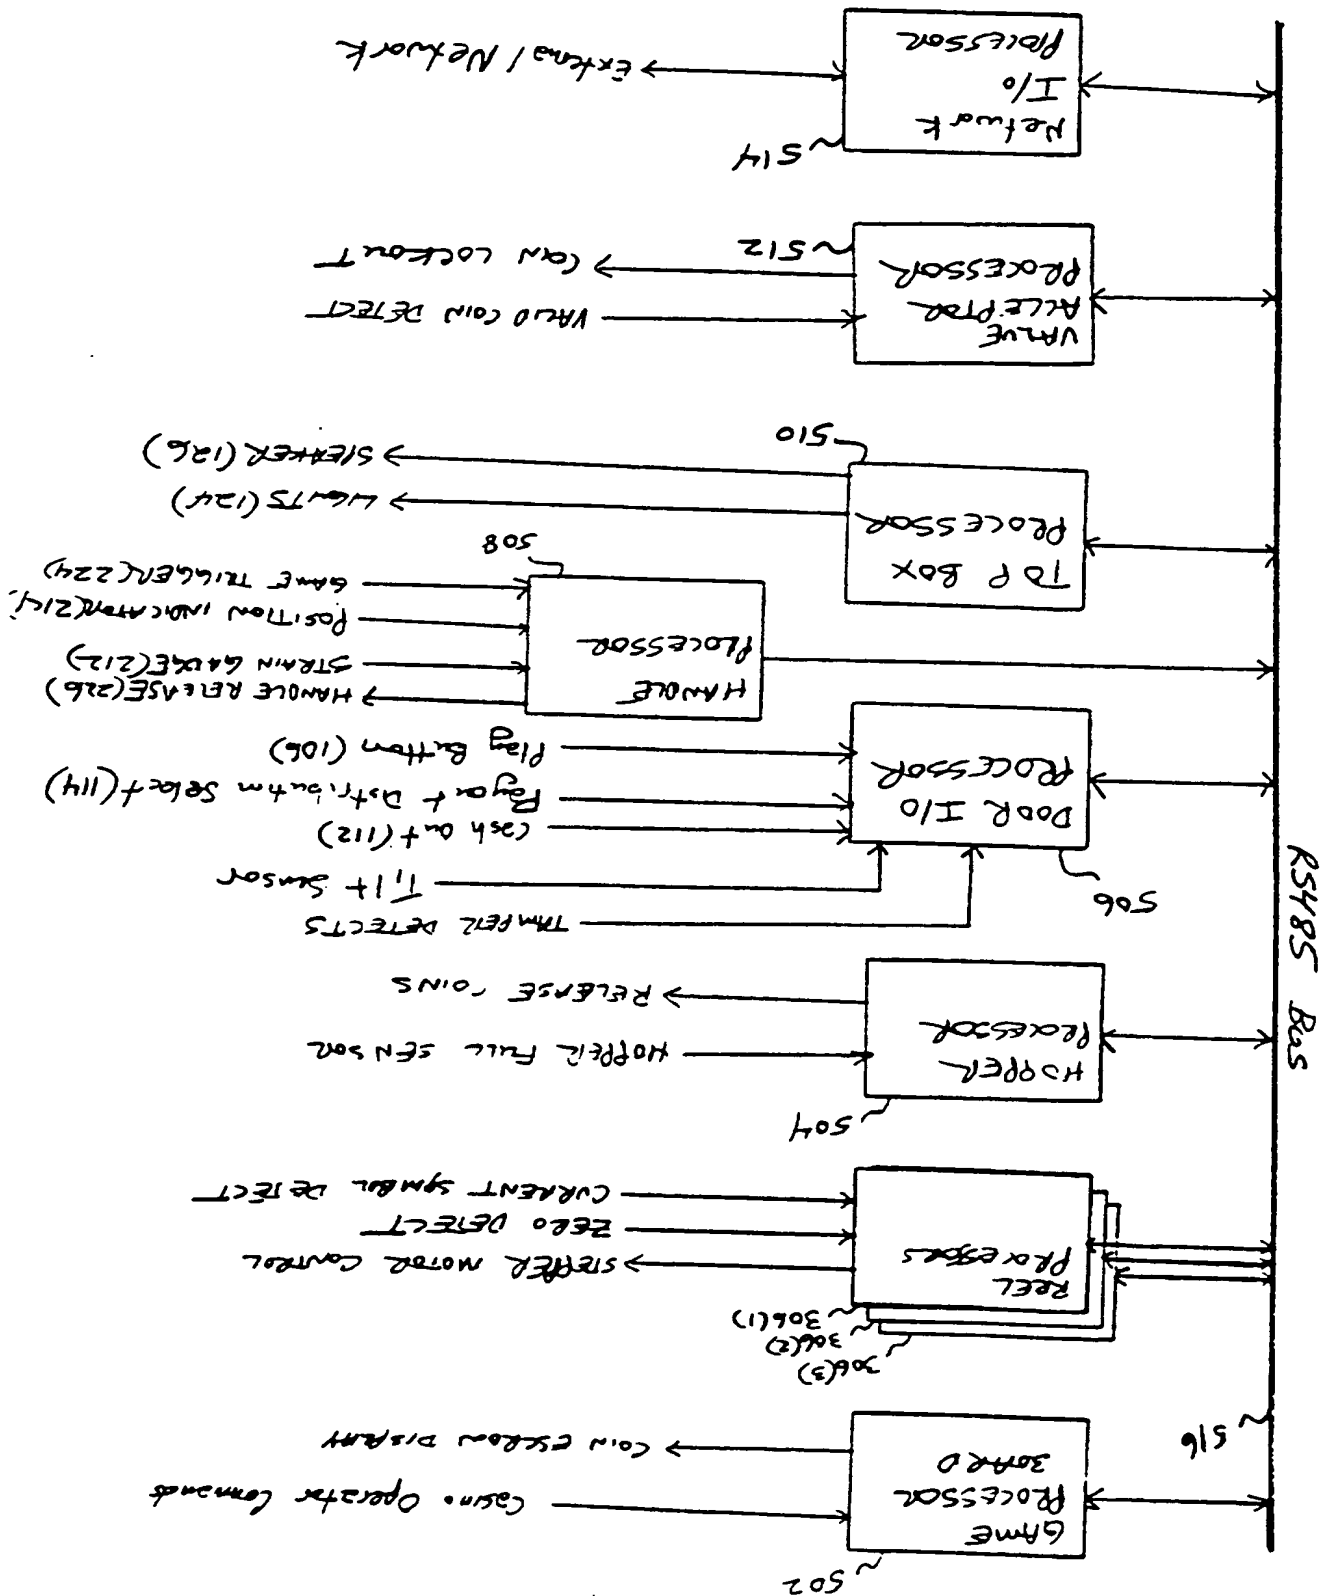 502
GAME
PROCESSOR
BOARD
Casino Operator Commands
COIN ESCROW DISPLAY
516
306(3)
306(2)
306(1)
REEL
PROCESSORS
STEPPER MOTOR CONTROL
ZERO DETECT
CURRENT SYMBOL DETECT
504
HOPPER
PROCESSOR
HOPPER FULL SENSOR
RELEASE COINS
RS485 Bus
506
TAMPER DETECTS
Tilt Sensor
Cash Out (112)
Payout Distribution Select (114)
Play Button (106)
DOOR I/O
PROCESSOR
HANDLE
PROCESSOR
HANDLE RELEASE (226)
STRAIN GAUGE (212)
POSITION INDICATOR (214)
GAME TRIGGER (224)
508
TOP BOX
PROCESSOR
LIGHTS (124)
SPEAKER (126)
510
VALUE
ACCEPTOR
PROCESSOR
VALID COIN DETECT
COIN LOCKOUT
512
514
Network
I/O
PROCESSOR
External Network